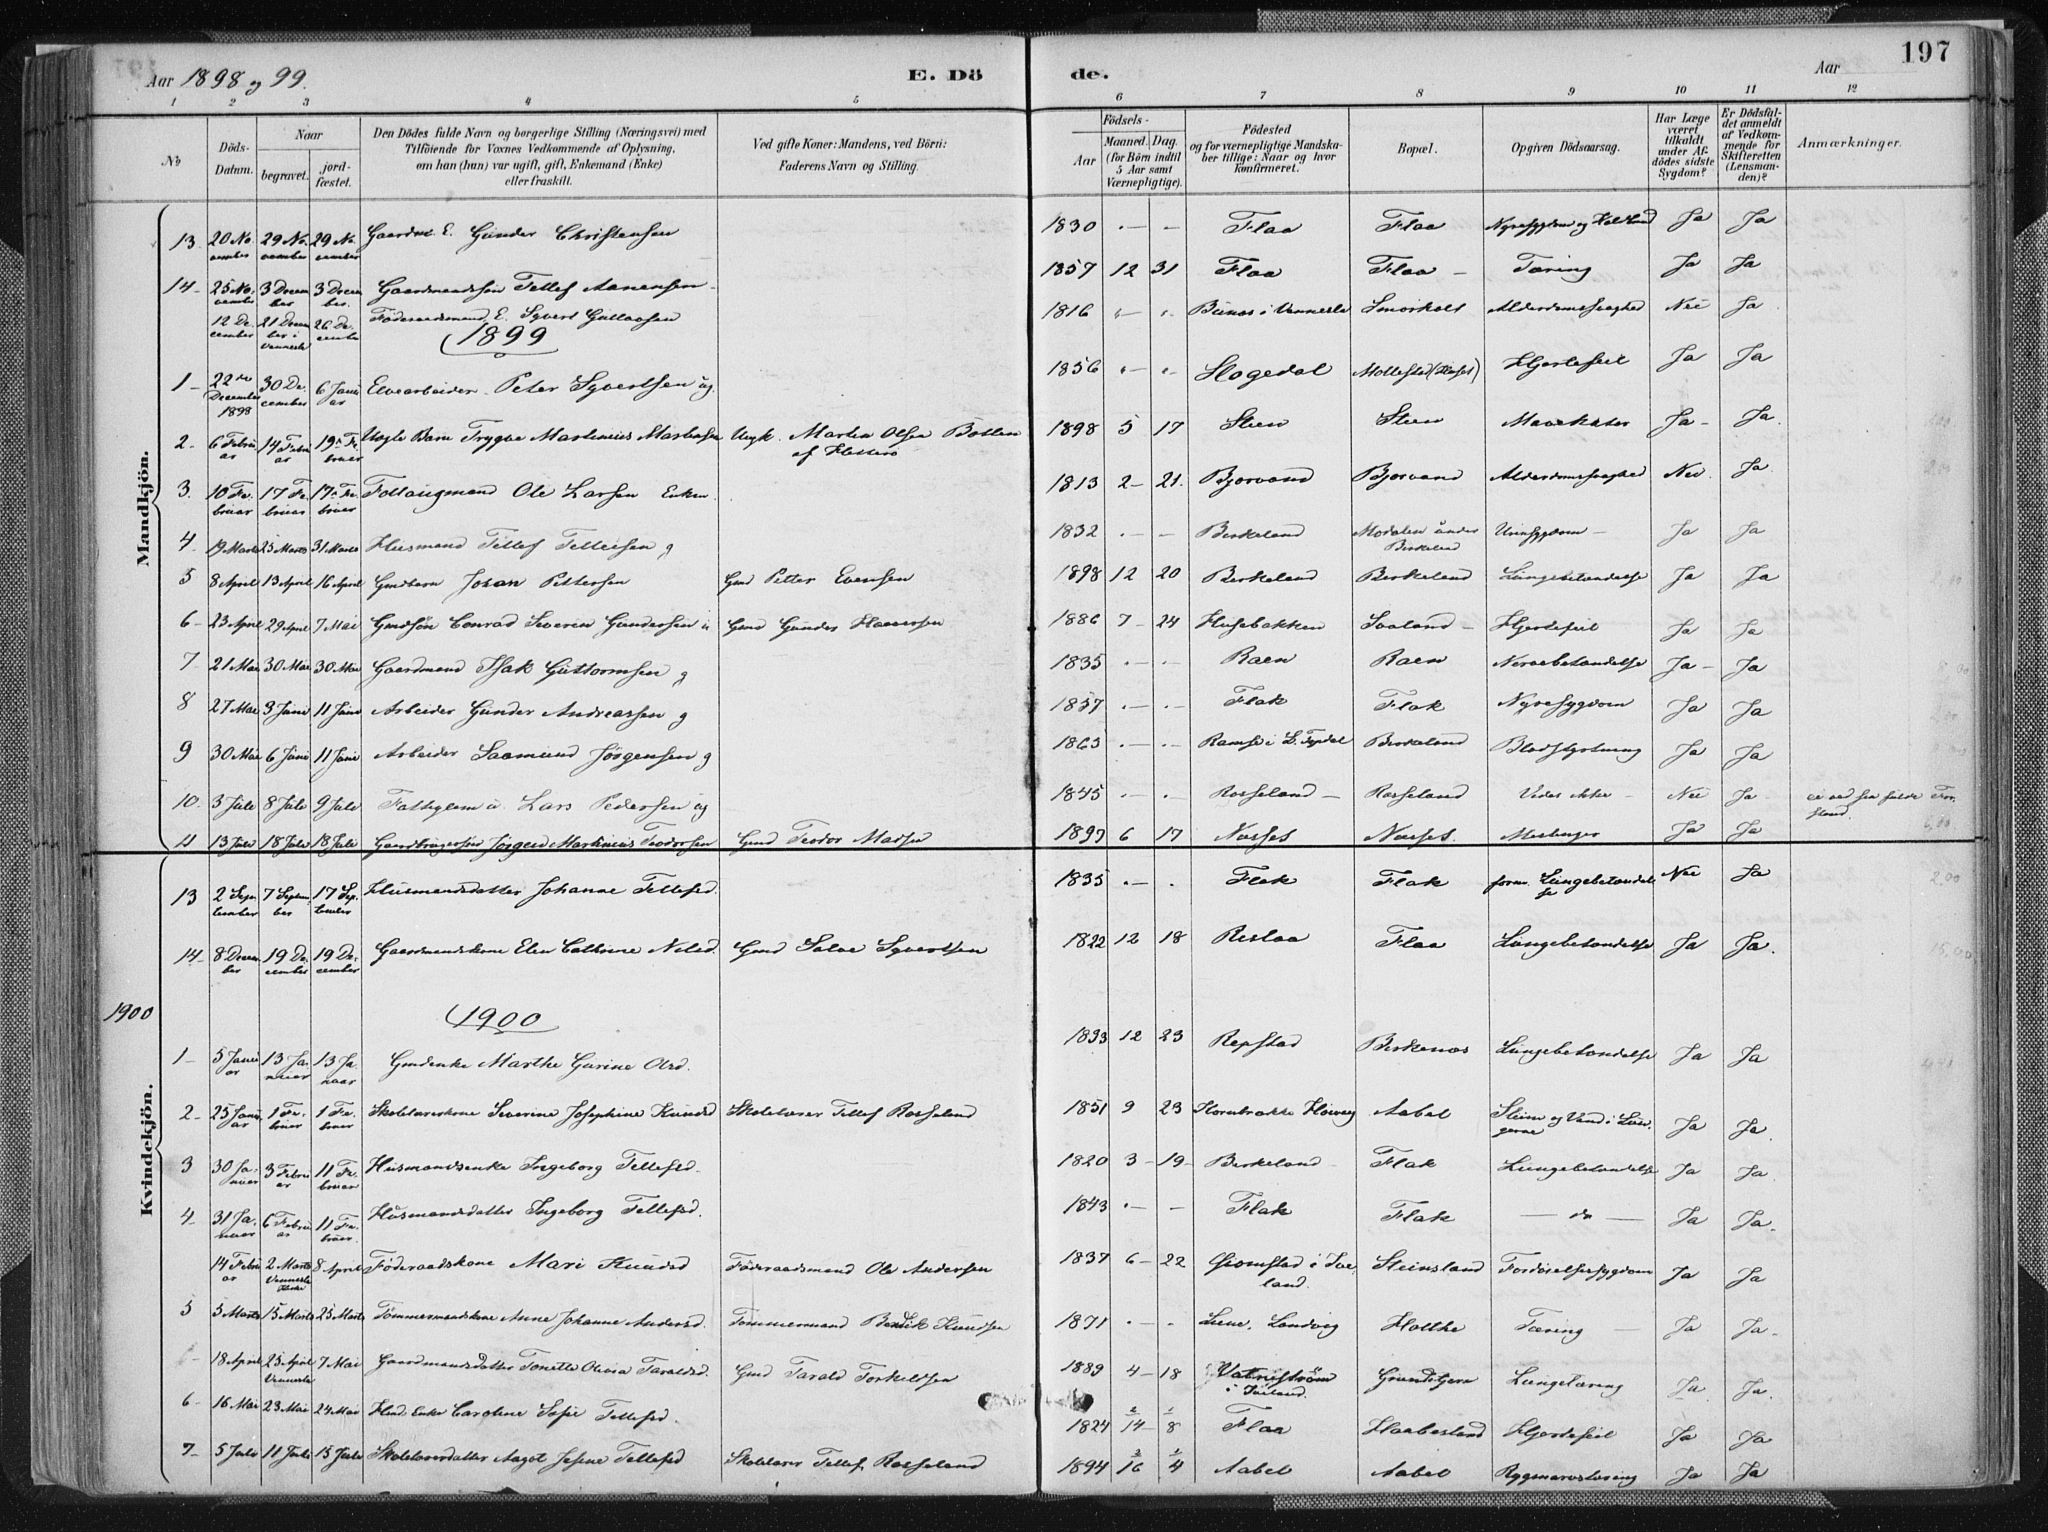 Aar 1898 og 99.
E. Dö
de.
Aar
197
1 2 3 4 5 6 7 8 9 10 11 12
No
Döds-
Datum.
Naar
begravet.
jord-
fæstet.
Den Dödes fulde Navn og borgerlige Stilling (Næringsvei) med
Tilföiende for Voxnes Vedkommende af Oplysning,
om han (hun) var ugift, gift, Enkemand (Enke)
eller fraskilt.
Ved gifte Koner: Mandens, ved Börn:
Faderens Navn og Stilling.
Födsels-
Aar
Maaned. Dag.
(for Börn indtil
5 Aar samt
Værnepligtige).
Födested
og for værnepligtige Mandska-
ber tillige: Naar og hvor
konfirmeret.
Bopæl.
Opgiven Dödsaarsag.
Har Læge
været
tilkaldt
under Af-
dödes sidste
Sygdom?
Er Dödsfal-
det anmeldt
af Vedkom-
mende for
Skifteretten
(Lensman-
den)?
Anmærkninger.
Mandkjön.
13. 20 November 29 November 29 November Gaardm. E. Gunder Christensen 1830 — — Flaa Flaa Nyresygdom og Ja Ja
14 - 25 November 3 December 3 December Gaardmandssön Tellef Aanensen - 1857 12 31 Flaa Flaa - Tæring Ja Ja
12 December 21 December i Vennesla 26 December Föderaadsmand E. Syvert Guttormsen 1816 Vennesla Alderdomssvaghed Nei Ja
1899
1 - 22de December 1898 30 December 6 Januar Elvearbeider Peter Syvertsen ug 1856 Hægedal Mollestad Hjertefeil Ja Ja
2 - 6 Februar 14 Februar 19 Februar Uægte Barn Trygve Martinius Martinsen Ungk. Martin Olsen Botten af Hitterö 1898 5 17 Steen Steen Mavekatar Ja - Ja.
3. 10 Februar 17 Februar 17 Februar Ole Larsen Enkem. 1813 2 - 21. Bjorvand Bjorvand Alderdomssvaghed Nei. Ja
4. 19 Marts 25 Marts 31 Marts Husmand Tellef Tellefsen g 1832 — — Birkeland Modalen under Birkeland Urinsygdom — Ja Ja
5 8 April 13 April 16 April Gmdbarn Johan Pettersen Gmd Petter Evensen 1898 12 20 Birkeland Birkeland Lungebetændelse Ja Ja
6 - 23 April 29 April 7 Mai Gmdsön Conrad Severin Gundersen u Gmd Gunder Haaversen 1886 7 - 24 Husebakken - Hjertefeil Ja Ja
7 21 Mai 30 Mai 30 Mai Gaardmand Isak Guttormsen g 1835 — — Raen Raen Nervebetændelse Ja - Ja
8 27 Mai 3 Juni 11 Juni Arbeider Gunder Andreassen g 1857 — — Flak Flak Nyresygdom Ja Ja
9 30 Mai 6 Juni 11 Juni Arbeider Saamund Jörgensen g 1863 — — Ramse i Birkeland Blodstyrtning Ja Ja
10. 3 Juli 8 Juli 9 Juli Fattiglem u. Lars Pedersen ug 1845 Rosseland — Rosseland Vides ikke - Nei Ja -
11 13 Juli 18 Juli 18 Juli Jörgen Martinius Teodorsen Gmd Teodor Madsen 1897 6 17 Næsset Næsset. Meslinger Ja Ja
Kvindekjön.
13 2 September 7 September 17 September Husmandsdatter Johanne Tellefsd. 1835 — — Flak Flak form. Lungebetændelse Nei Ja
14 - 8 December 19 December 19 December Gaardmandskone Elen Cathrine Nilsd. Gmd Salve Syvertsen 1822 12 18 Flaa Lungebetændelse Ja Ja.
1900
1900
1 - 5 Januar 13 Januar 13 Januar Gmdenke Marthe Gurine Olsd. 1833 12 23 Repstad Birkenæs Lungebetændelse Ja Ja
2 - 25 Januar 1 Februar 1 Februar Skolelærerskone Severine Josephine Knudsd Skolelærer Tellef Rosseland 1851 9 23 Aabel Sliim og Vand i Lungerne Ja Ja.
3 30 Januar 3 Februar 11 Februar Husmandsenke Ingeborg Tellefsd. 1820 3 - 19 - Birkeland - Flak Lungebetændelse Ja Ja.
4 - 31 Januar 6 Februar 11 Februar Husmandsdatter Ingeborg Tellefsd. 1843 — — Flak Flak — do — Ja Ja.
14 Februar 2 Marts Vennesla Kirke 8 April Föderaadskone Mari Knudsd Föderaadsmand Ole Andersen 1837 6 - 22 Steinsland Fordöielsessygdom Ja Ja
5 5 Marts 15 Marts 25 Marts Tömmermandskone Anne Johanne Andersd. Tömmermand Bendik Knudsen 1871 — — Landvig Tæring — Ja Ja -
18 April 25 April Vennesla 7 Mai Gaardmandsdatter Tonette Olivia Taraldsd. Gmd Tarald Torkeldsen 1889 4 - 18 Vatneström i Iveland. Grundetjern Lungetæring Ja Ja.
6 - 16 Mai 23 Mai 24 Mai Enke Caroline Sofie Tellefsd. 1824 14 8 Flaa Haabesland Hjertefeil Ja Ja
7 - 5 Juli 11 Juli 15 Juli Skolelærerdatter Aagot Josine Tellefsd Skolelærer Tellef Rosseland 1894 16 4 Aabel Aabel Rygmarvstæring Ja Ja